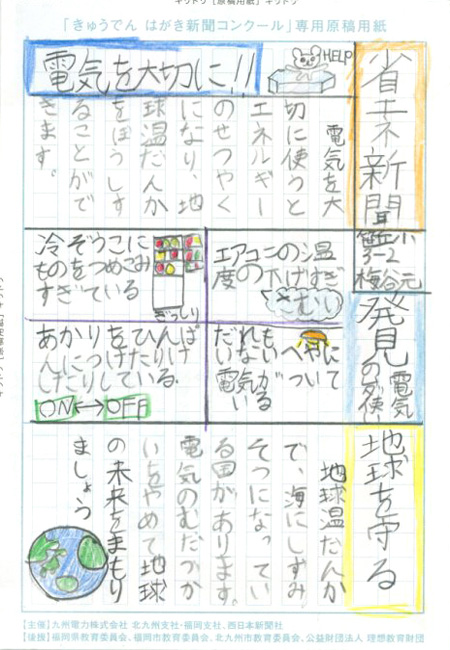 「きゅうでん はがき新聞コンクール」専用原稿用紙
省エネ新聞
3-2
電気を大切に!!
HELP
電気を大
切に使うと
エネルギー
のせつやく
になり、地
球温だんか
をぼうしす
ることがで
きます。
発見
電気
エアコンの温
度の下げすぎ
さむい
冷ぞうこに
ものをつめこみ
すぎている
ぎっしり
だれも
へやに
電気が
あかりをひんぱ
んにつけたりけ
したりしている。
ON↔OFF
地球を守る
地球温だんか
で、海にしずみ
そうになってい
る国があります。
電気のむだづか
いをやめて地球
の未来をまもり
ましょう。
【主催】九州電力株式会社 北九州支社・福岡支社、西日本新聞社
【後援】福岡県教育委員会、福岡市教育委員会、北九州市教育委員会、公益財団法人 理想教育財団